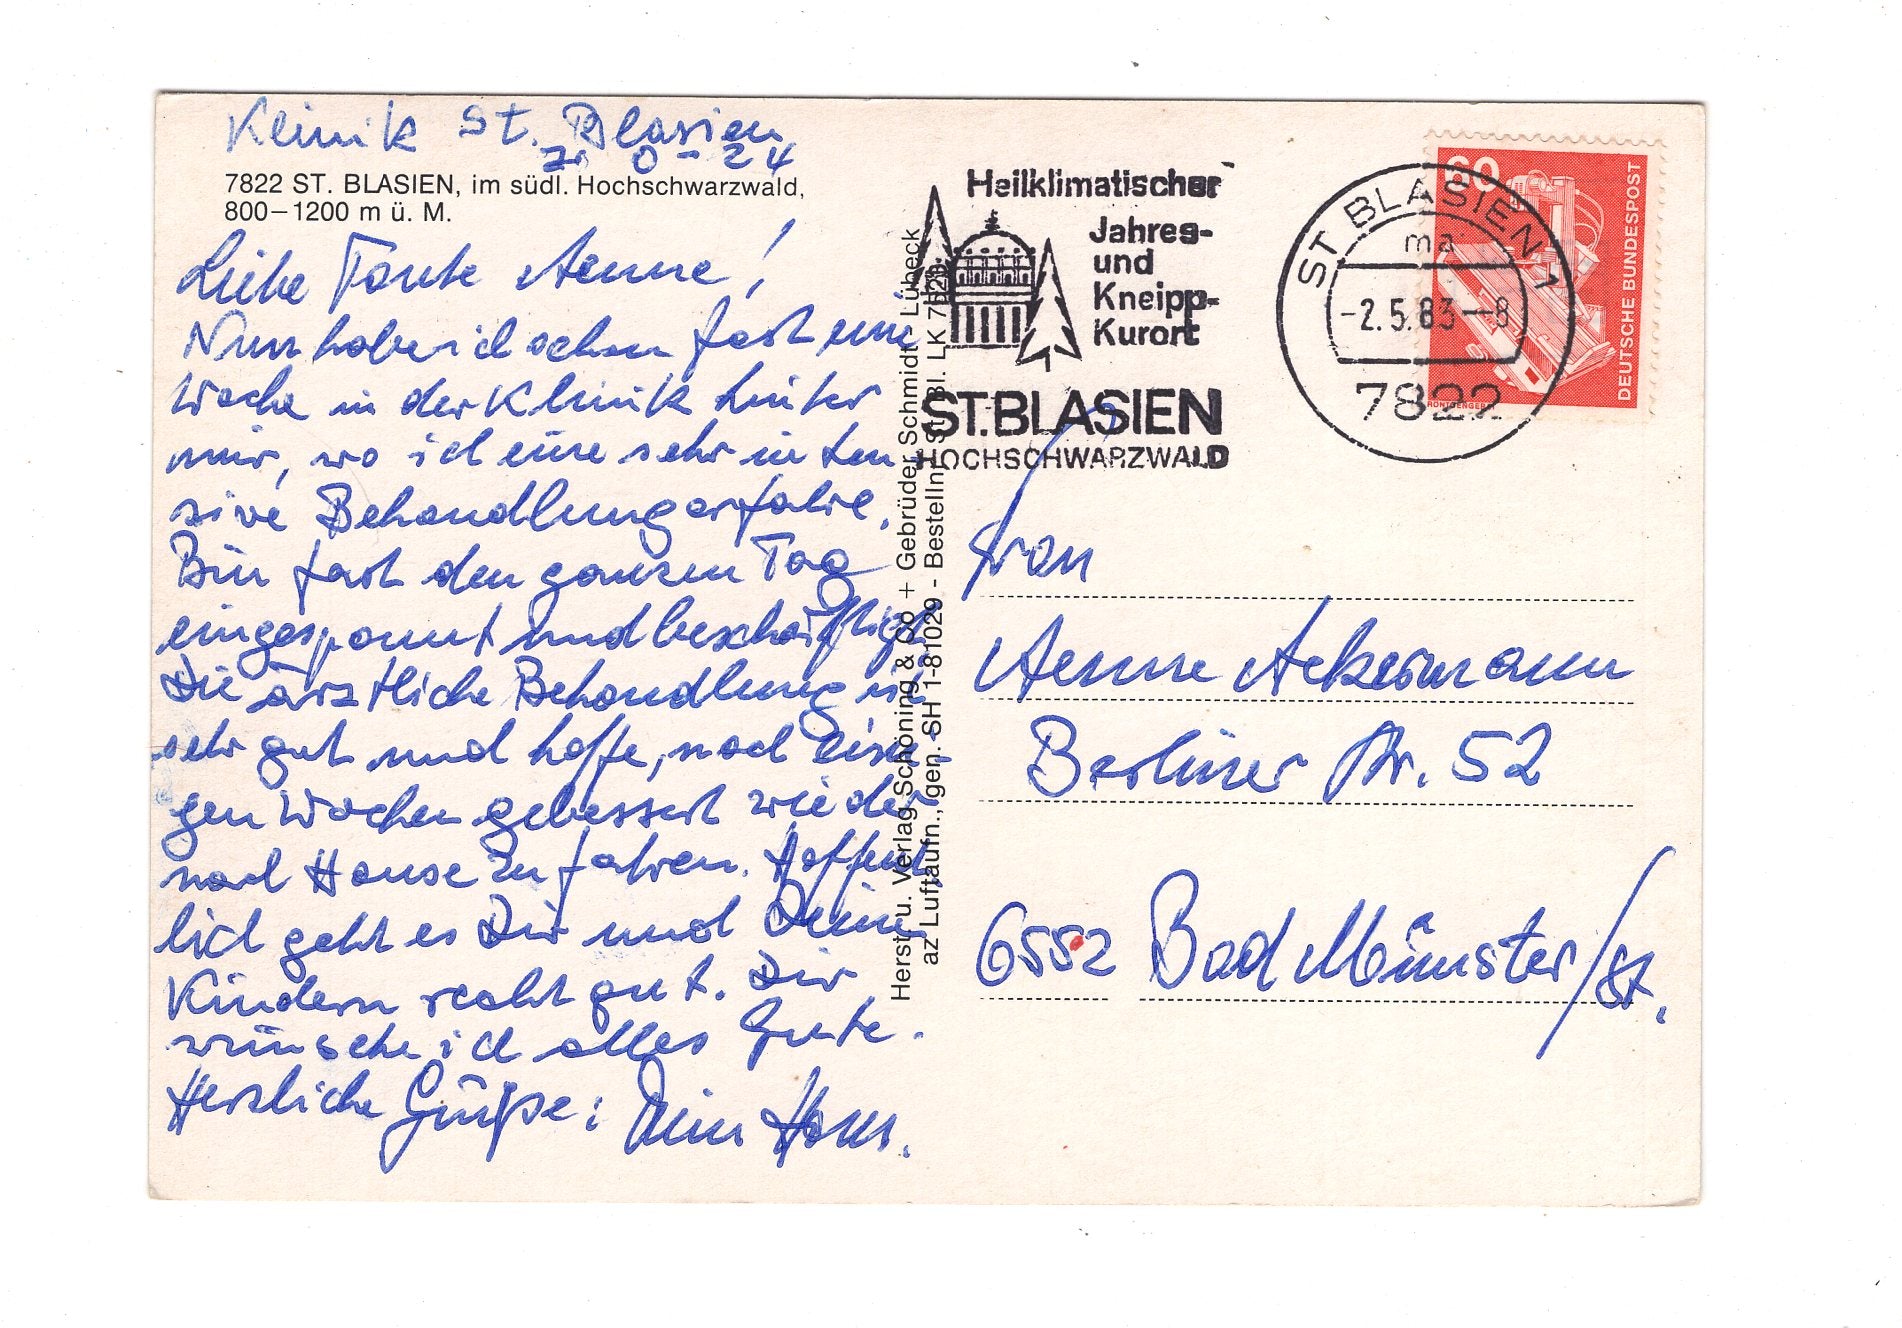 Klinik St. Blasien
Zi 0-24
7822 ST. BLASIEN, im südl. Hochschwarzwald,
800–1200 m ü. M.
Liebe Tante Aenne!
Nun habe ich schon fast eine
Woche in der Klinik hinter
mir, wo ich eine sehr inten-
sive Behandlung erfahre.
Bin fast den ganzen Tag
eingespannt und beschäftigt.
Die ärztliche Behandlung ist
sehr gut und hoffe, nach eini-
gen Wochen gebessert wieder
nach Hause zu fahren. Hoffent-
lich geht es Dir und Deinen
Kindern recht gut. Dir
wünsche ich alles Gute.
Herzliche Grüße: Dein Hans.
Herst. u. Verlag Schöning & Co + Gebrüder Schmidt - Lübeck
az Luftaufn., gen. SH 1-81029 - Bestellnr. St. Bl. LK 7620
Heilklimatischer
Jahres-
und
Kneipp-
Kurort
ST.BLASIEN
HOCHSCHWARZWALD
ST BLASIEN 1
ma
-2.5.83-8
7822
60
DEUTSCHE BUNDESPOST
RÖNTGENGERÄT
Frau
Aenne Ackermann
Berliner Str. 52
6552 Bad Münster/St.